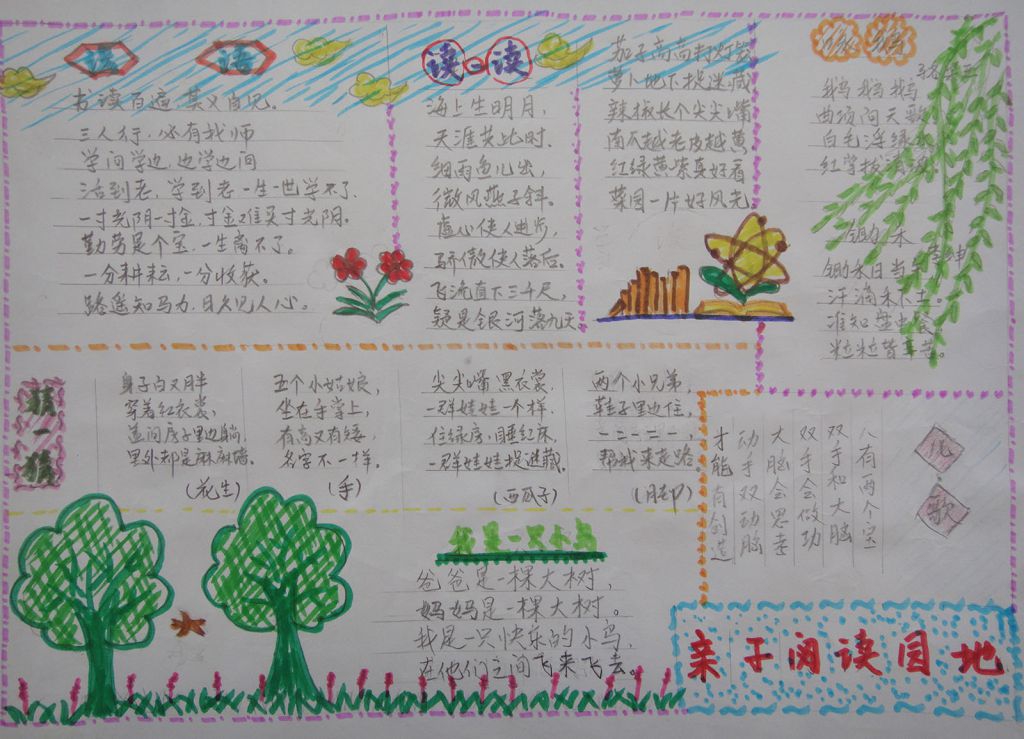 谚语
书读百遍,其义自见。
三人行,必有我师
学问学边,边学边问
活到老,学到老一生一世学不了.
一寸光阴一寸金,寸金难买寸光阴。
勤劳是个宝,一生离不了。
一分耕耘,一分收获。
路遥知马力,日久见人心。
读一读
海上生明月,
天涯共此时.
细雨鱼儿出,
微风燕子斜.
虚心使人进步,
骄傲使人落后。
飞流直下三千尺,
疑是银河落九天.
茄子高高打灯笼
萝卜地下捉迷藏
辣椒长个尖尖嘴
南瓜越老皮越黄
红绿黄紫真好看
菜园一片好风光
骆宾王
鹅 鹅 鹅
曲项向天歌
白毛浮绿水
红掌拨清波
锄禾
李绅
锄禾日当午
汗滴禾下土。
谁知盘中餐,
粒粒皆辛苦。
猜一猜
身子白又胖
穿着红衣裳,
盖间房子里边躺.
里外都是麻麻墙.
(花生)
五个小姑娘,
坐在手掌上,
有高又有矮,
名字不一样.
(手)
尖尖嘴 黑衣裳.
一群娃娃一个样.
住绿房,睡红床.
一群娃娃捉迷藏.
(西瓜子)
两个小兄弟,
鞋子里边住,
一二一二一,
帮我来走路.
(脚)
我是一只小鸟
爸爸是一棵大树,
妈妈是一棵大树。
我是一只快乐的小鸟,
在他们之间飞来飞去。
儿歌
人有两个宝
双手和大脑
双手会做功
大脑会思考
动手双动脑
才能有创造
亲子阅读园地